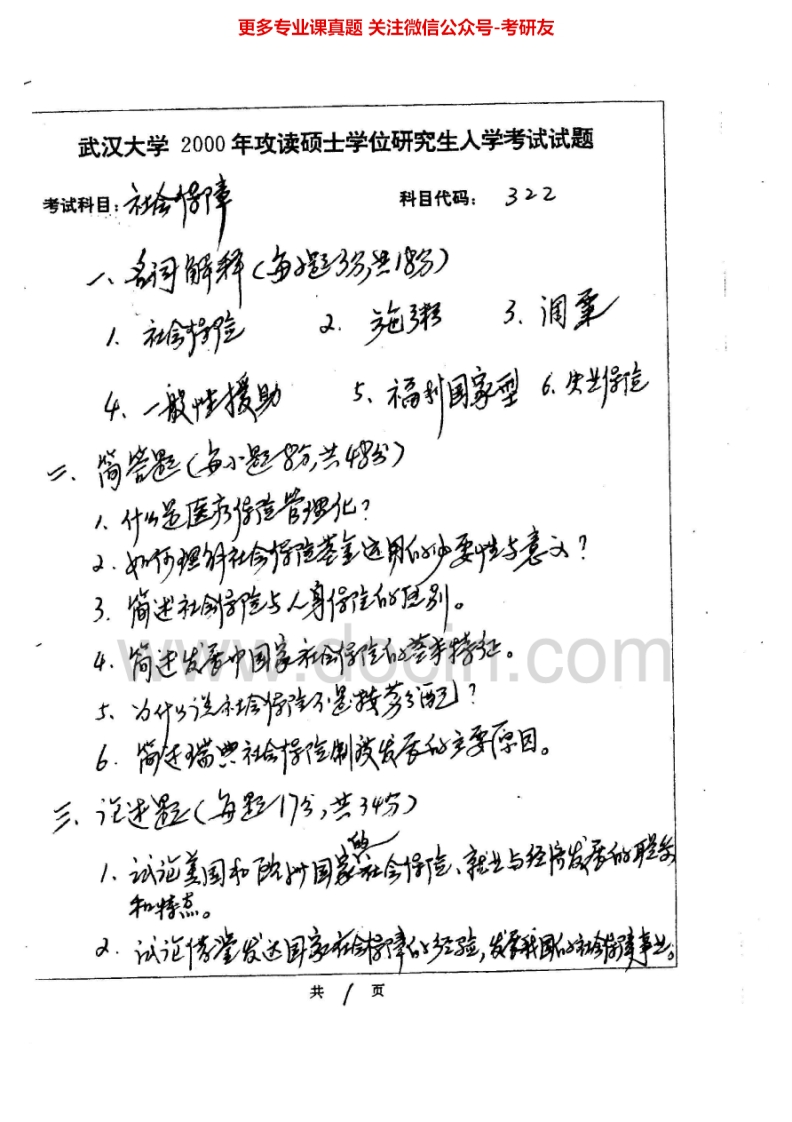 更多专业课真题 关注微信公众号-考研友
武汉大学 2000 年攻读硕士学位研究生入学考试试题
考试科目：社会保障 科目代码： 322
一、名词解释（每小题3分，共18分）
1. 社会保险 2. 施粥 3. 调粟
4. 一般性援助 5. 福利国家型 6. 失业保险
二、简答题（每小题8分，共48分）
1. 什么是医疗保险管理化？
2. 如何理解社会保险基金运用的必要性与意义？
3. 简述社会保险与人身保险的区别。
4. 简述发展中国家社会保险的基本特征。
5. 为什么说社会保险不是按劳分配？
6. 简述瑞典社会保险制度发展的主要原因。
www.docin.com
三、论述题（每题17分，共34分）
1. 试论美国和欧洲国家的社会保险、就业与经济发展的联系
和特点。
2. 试论借鉴发达国家社会保障的经验，发展我国的社会保障事业。
共 1 页